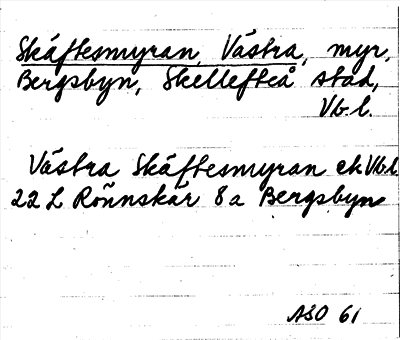 Skäftesmyran, Västra, myr,
Bergsbyn, Skellefteå stad,
Vb. l.
Västra Skäftesmyran ek Vb. l.
22 L Rönnskär 8a Bergsbyn
ASO 61